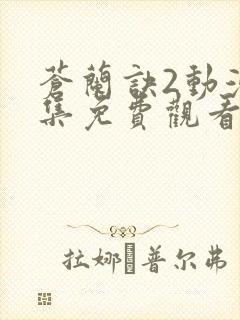 蒼蘭訣2動
集免費觀看
拉娜普尔弗